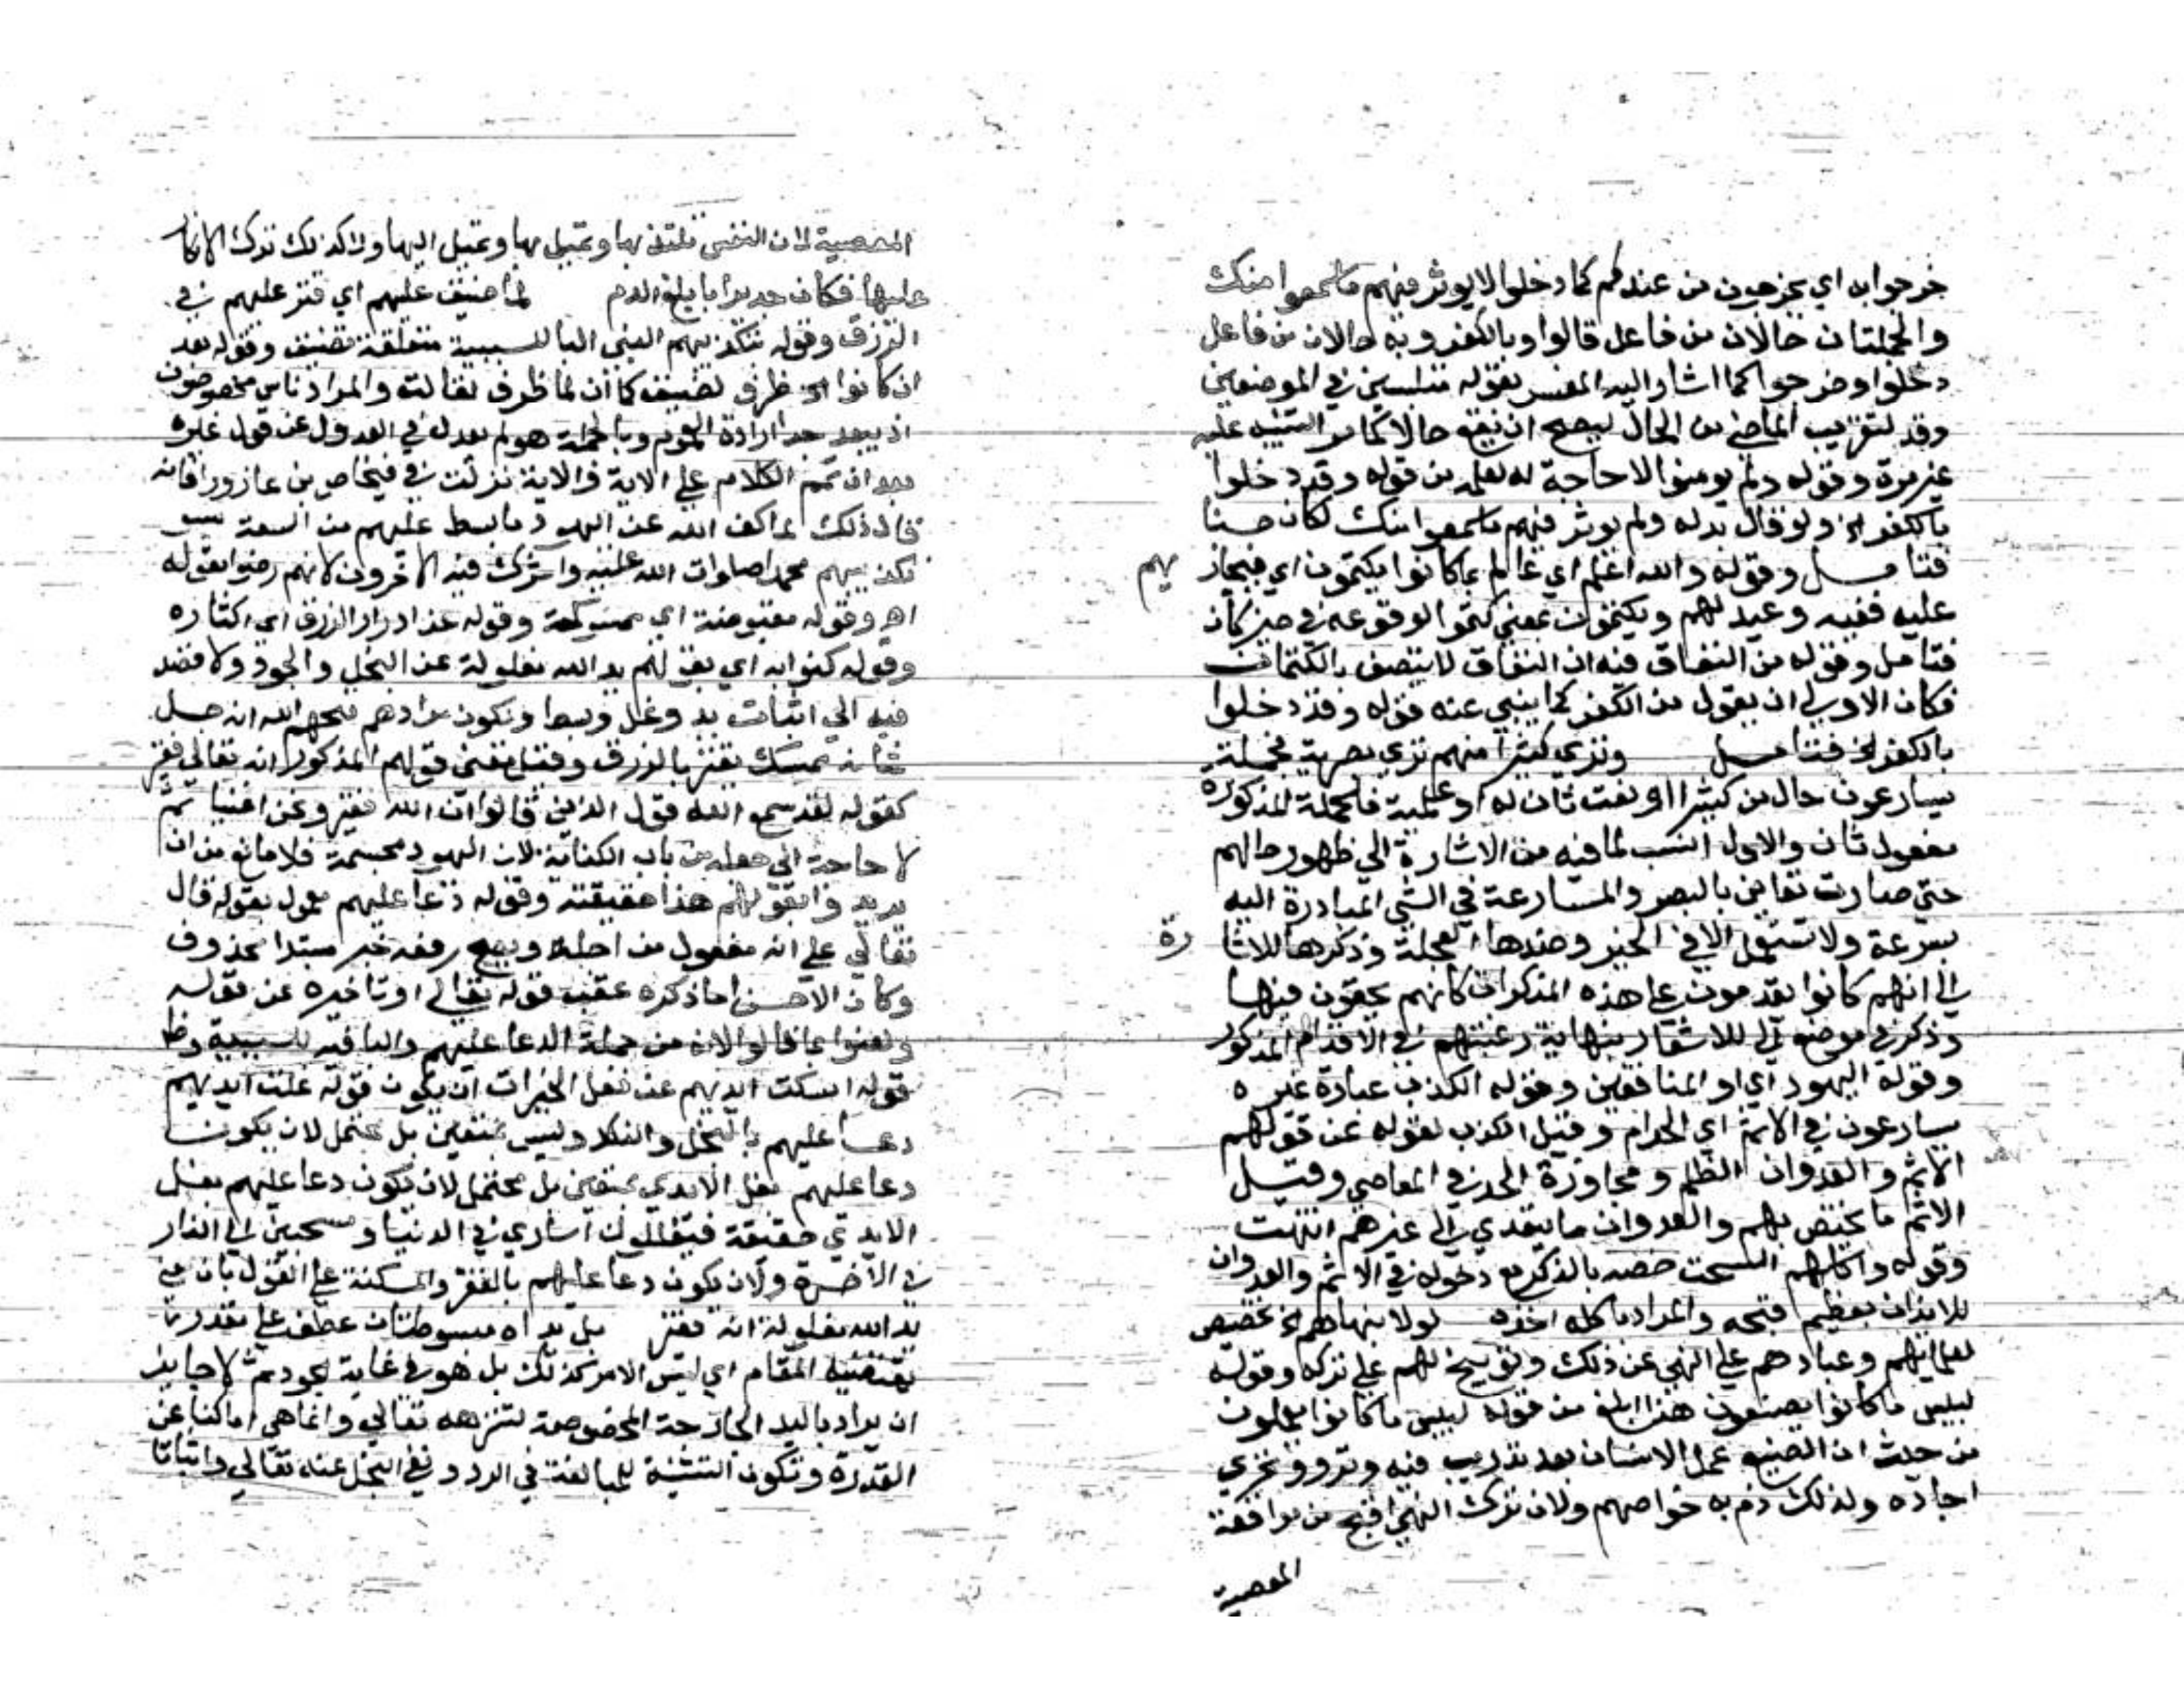 خرجوا به اي يخرجون من عندكم كما دخلوا لا يوثر فيهم ما سمعوا منك
والجملتان حالان من فاعل قالوا وبالكفر وبه حالان من فاعل
دخلوا وخرجوا كما اشار اليه المفسر بقوله متلبسين في الموضعين
وقد لتقريب الماضي من الحال ليصح ان يقع حالا كما مر التنبيه عليه
غير مرة وقوله ولم يومنوا لا حاجة له لعلمه من قوله وقد دخلوا
بالكفر الخ ولو قال بدله ولم يوثر فيهم ما سمعوا منك لكان حسنا
فتامل وقوله والله اعلم اي عالم بما كانوا يكتمون اي فيجازيهم
عليه ففيه وعيد لهم ويكتمون بمعني كتموا لوقوعه في حيز كان
فتامل وقوله من النفاق فيه ان النفاق لا يتصف بالكتمان
فكان الاولي ان يقول من الكفر كما ينبي عنه قوله وقد دخلوا
بالكفر الخ فتامل وتري كثيرا منهم تري بصرية فجملة
يسارعون حال من كثيرا او نعت ثان له او علمية فالجملة المذكورة
مفعول ثان والاول انسب لما فيه من الاشارة الي ظهور حالهم
حتي صارت تعاين بالبصر والمسارعة في الشي المبادرة اليه
بسرعة ولا تستعمل الا في الخير وضدها العجلة وذكرها للاشارة
الي انهم كانوا يقدمون علي هذه المنكرات كانهم محقون فيها
وذكر في موضع الي للاشعار بنهاية رغبتهم في الاقدام المذكور
وقوله اليهود اي او المنافقين وقوله الكذب عبارة غيره
يسارعون في الاثم اي الحرام وقيل الكذب لقوله عن قولهم
الاثم والعدوان الظلم ومجاوزة الحد في المعاصي وقيل
الاثم ما يختص بهم والعدوان ما يتعدي الي غيرهم انتهت
وقوله واكلهم السحت خصه بالذكر مع دخوله في الاثم والعدوان
للايذان بعظيم قبحه والمراد باكله اخذه لولا ينهاهم الخ تحضيض
لعلمائهم وعبادهم علي النهي عن ذلك وتوبيخ لهم علي تركه وقوله
لبيس ما كانوا يصنعون هذا ابلغ من قوله لبيس ما كانوا يعملون
من حيث ان الصنع عمل الانسان بعد تدريب فيه وترو وتحري
اجادة ولذلك ذم به خواصهم ولان ترك النهي اقبح من موافقة
المعصية
المعصية لان النفس تلتذ بها وتميل اليها ولا كذلك ترك الانكار
عليها فكان جديرا بابلغ الذم لما ضيق عليهم اي قتر عليهم في
الرزق وقوله بتكذيبهم النبي البا للسببية متعلقة بضيق وقوله بعد
ان كانوا الخ ظرف لضيق كما ان لما ظرف لقالت والمراد ناس مخصوصون
اذ يبعد جدا ارادة العموم وبالجملة هو لم يعدل في العدول عن قول غيره
بعد ان تمم الكلام علي الاية والاية نزلت في فنخاص بن عازورا فانه
قال ذلك لما كف الله عن اليهود ما بسط عليهم من السعة بسبب
تكذيبهم محمدا صلوات الله عليه واشرك فيه الاخرون لانهم رضوا بقوله
اهـ وقوله مقبوضة اي ممسكة وقوله عن ادرار الرزق اي اكثاره
وقوله كنوا به اي بقولهم يد الله مغلولة عن البخل والجود ولا قصد
فيه الي اثبات يد وغل وبسط ويكون مرادهم قبحهم الله انه جل
شانه ممسك يقتر بالرزق وقيل معني قولهم المذكور انه تعالي فقير
كقوله لقد سمع الله قول الذين قالوا ان الله فقير ونحن اغنيا ثم
لا حاجة الي جعله من باب الكناية لان اليهود مجسمة فلا مانع من ان
يريدوا بقولهم هذا حقيقته وقوله دعا عليهم معمول بقوله قال
تعالي علي انه مفعول من اجله ويصح رفعه خبر مبتدا محذوف
وكان الاحسن اما ذكره عقب قوله تعالي او تاخيره عن قوله
ولعنوا بما قالوا لانه من جملة الدعا عليهم والبا فيه للسببية وظا
قوله امسكت ايديهم عن فعل الخيرات ان يكون قوله غلت ايديهم
دعا عليهم بالبخل والنكد وليس بمتعين بل يحتمل لان يكون
دعا عليهم بغل الايدي بمتعين بل محتمل لان يكون دعا عليهم بغل
الايدي حقيقة فيغللون اساري في الدنيا ومسحبين الي النار
في الاخرة ولان يكون دعا عليهم بالفقر والمسكنة علي القول بان معني
يد الله مغلولة انه فقير بل يداه مبسوطتان عطف علي مقدر ما
يقتضيه المقام اي ليس الامر كذلك بل هو في غاية الجود ثم لا جايز
ان يراد باليد الجارحة المخصوصة لتنزهه تعالي وانما هي اما كناية عن
القدرة وتكون التثنية للمبالغة في الرد ونفي البخل عنه تعالي واثباتا